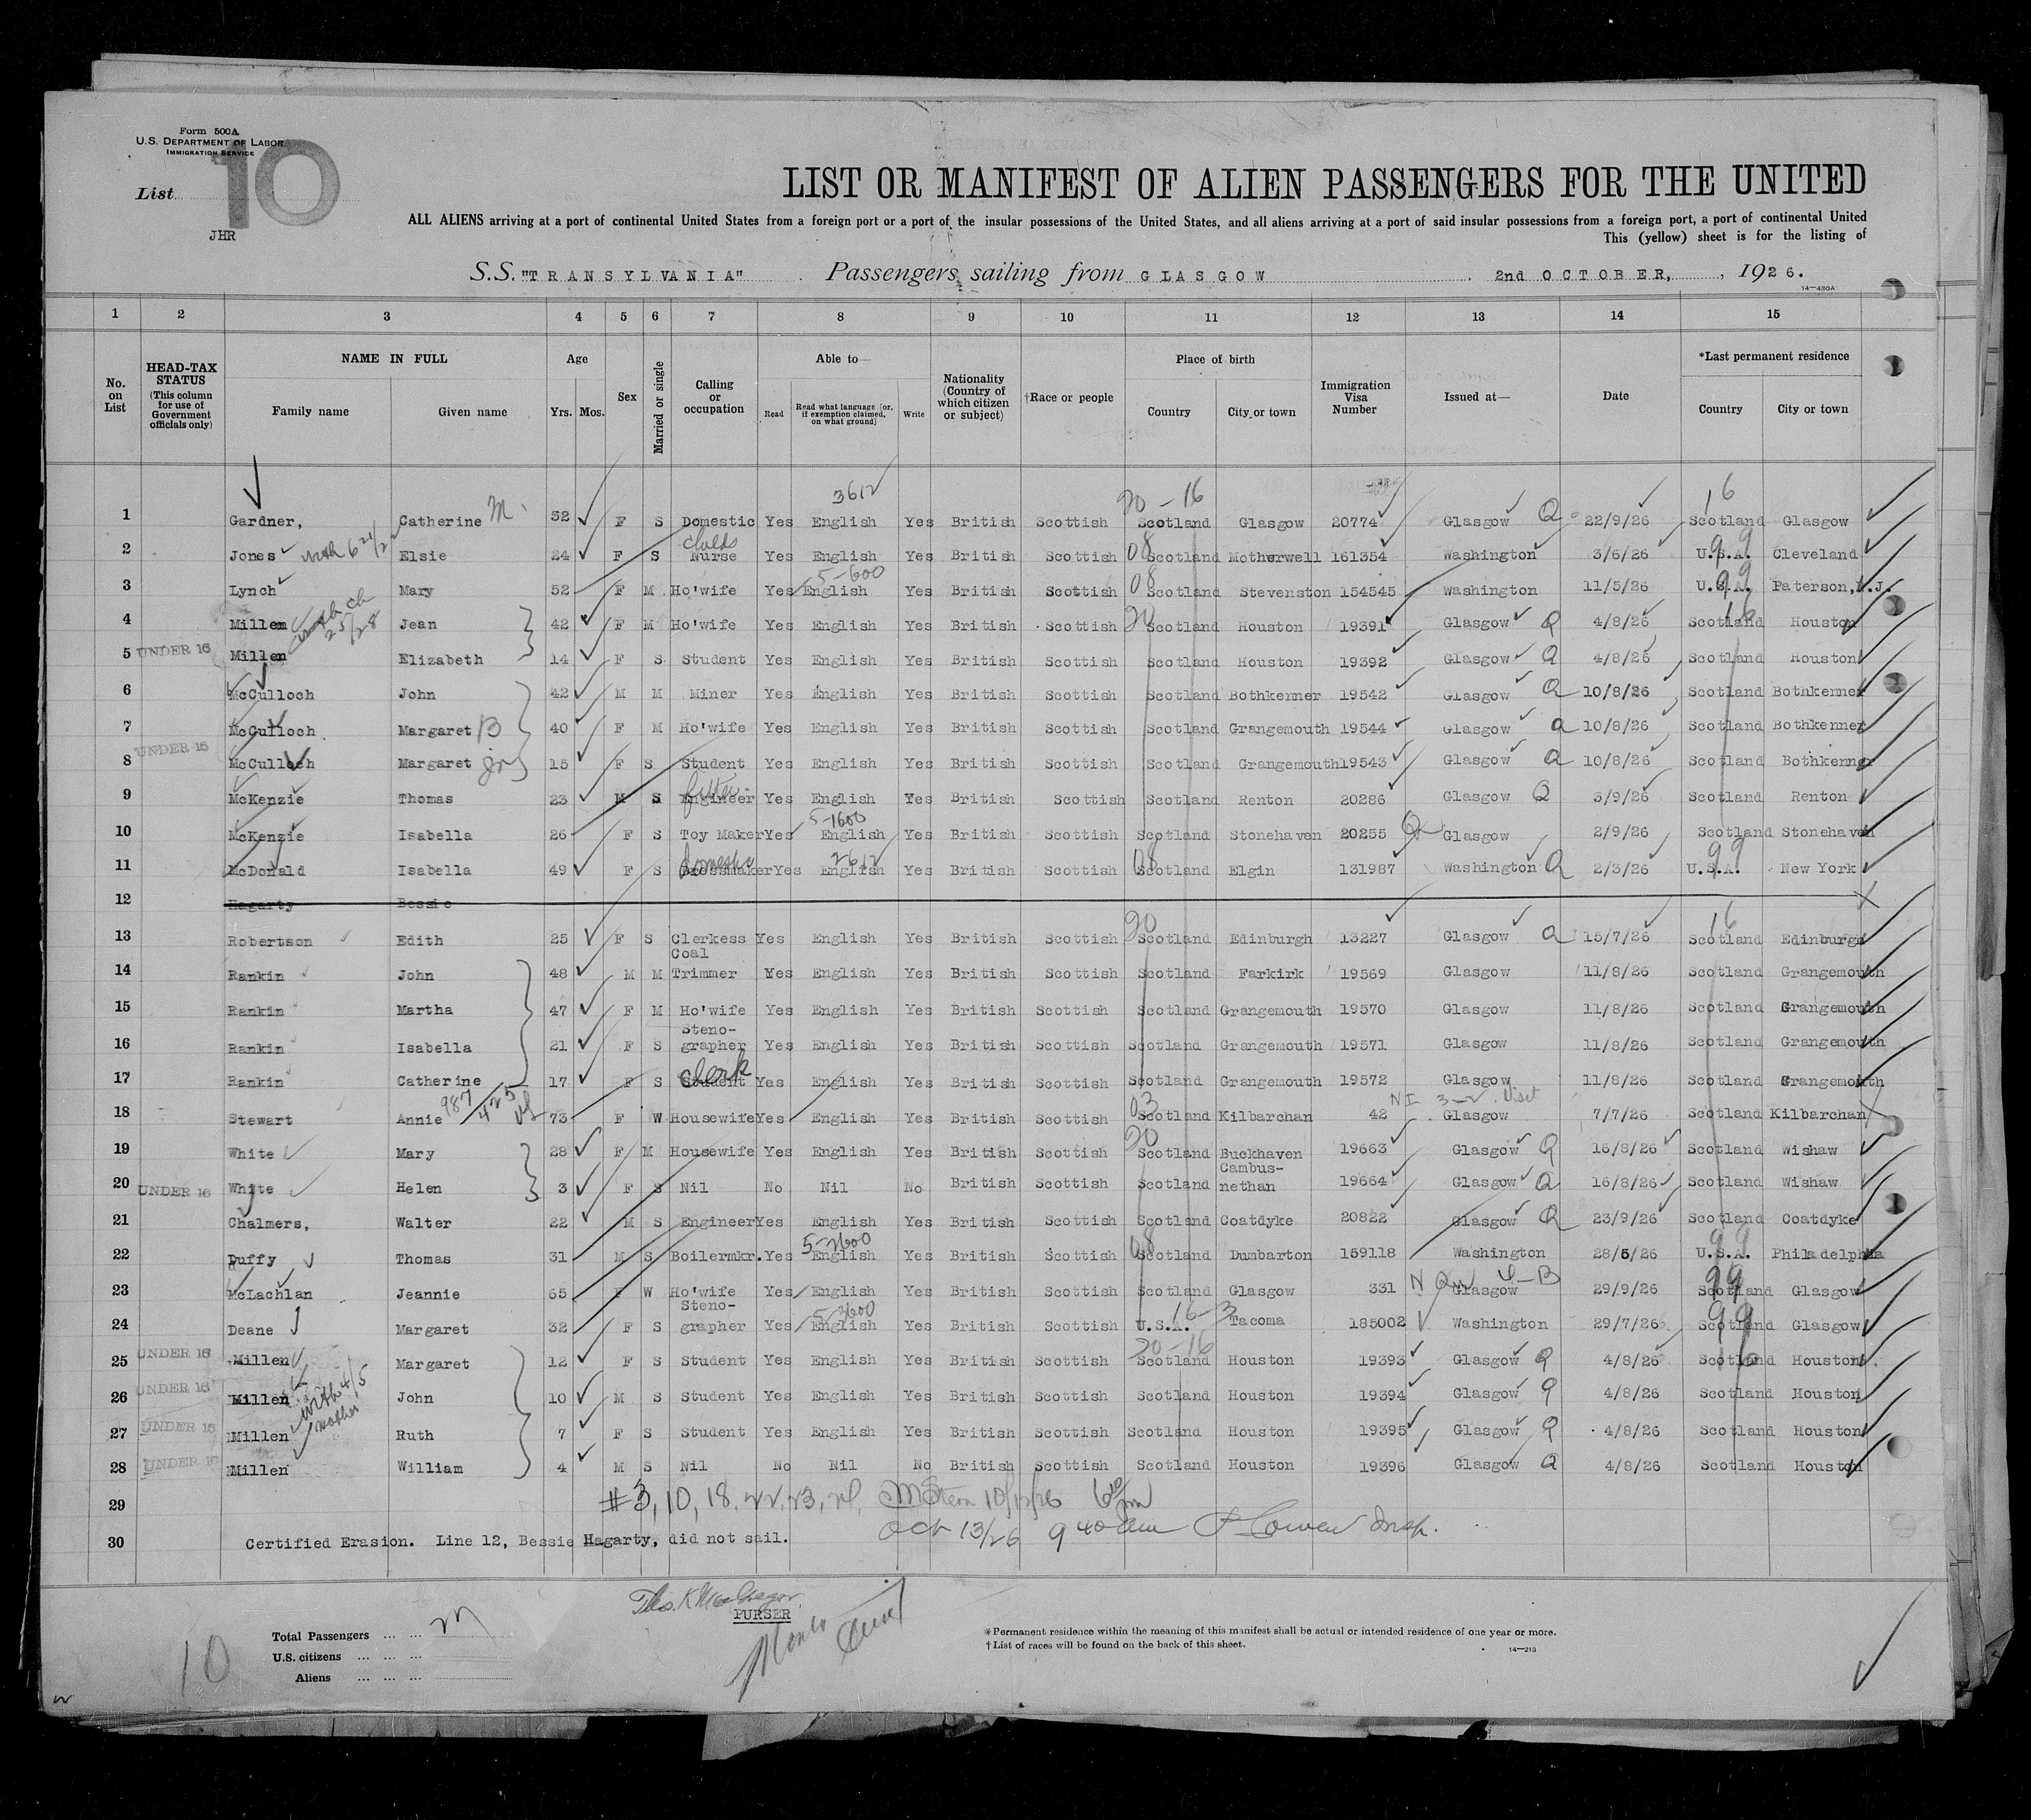 Form 500A
U.S. DEPARTMENT OF LABOR
IMMIGRATION SERVICE
List 10
JHR
LIST OR MANIFEST OF ALIEN PASSENGERS FOR THE UNITED
ALL ALIENS arriving at a port of continental United States from a foreign port or a port of the insular possessions of the United States, and all aliens arriving at a port of said insular possessions from a foreign port, a port of continental United
This (yellow) sheet is for the listing of
S.S. "TRANSYLVANIA" Passengers sailing from GLASGOW, 2nd OCTOBER, 1926.
14—480A
1 2 3 4 5 6 7 8 9 10 11 12 13 14 15
No. on List
HEAD-TAX STATUS (This column for use of Government officials only)
NAME IN FULL Family name Given name
Age Yrs. Mos.
Sex
Married or single
Calling or occupation
Able to— Read Read what language [or, if exemption claimed, on what ground] Write
Nationality (Country of which citizen or subject)
†Race or people
Place of birth Country City or town
Immigration Visa Number
Issued at—
Date
*Last permanent residence Country City or town
3612 20-16 16
1 Gardner, Catherine M. 32 F S Domestic Yes English Yes British Scottish Scotland Glasgow 20774 Glasgow Q 22/9/26 Scotland Glasgow
2 Jones Elsie 24 F S childs Nurse Yes English Yes British Scottish 08 Scotland Motherwell 161354 Washington 3/6/26 99 U.S.A. Cleveland
3 Lynch Mary 52 F M Ho'wife Yes 5-600 English Yes British Scottish 08 Scotland Stevenston 154545 Washington 11/5/26 99 U.S.A. Paterson, N.J.
4 Millen Jean 42 F M Ho'wife Yes English Yes British Scottish 20 Scotland Houston 19391 Glasgow Q 4/8/26 16 Scotland Houston
5 UNDER 16 Millen Elizabeth 14 F S Student Yes English Yes British Scottish Scotland Houston 19392 Glasgow Q 4/8/26 Scotland Houston
6 McCulloch John 42 M M Miner Yes English Yes British Scottish Scotland Bothkenner 19542 Glasgow Q 10/8/26 Scotland Bothkenner
7 McCulloch Margaret B 40 F M Ho'wife Yes English Yes British Scottish Scotland Grangemouth 19544 Glasgow Q 10/8/26 Scotland Bothkenner
8 UNDER 16 McCulloch Margaret jr 15 F S Student Yes English Yes British Scottish Scotland Grangemouth 19543 Glasgow Q 10/8/26 Scotland Bothkenner
9 McKenzie Thomas 23 M S Engineer fitter Yes English Yes British Scottish Scotland Renton 20286 Glasgow Q 3/9/26 Scotland Renton
10 McKenzie Isabella 26 F S Toy Maker Yes 5-1600 English Yes British Scottish Scotland Stonehaven 20255 Q Glasgow 2/9/26 Scotland Stonehaven
11 McDonald Isabella 49 F S Domestic Dressmaker Yes 2612 English Yes British Scottish 08 Scotland Elgin 131987 Washington Q 2/3/26 99 U.S.A. New York
12 Hagarty Bessie
13 Robertson Edith 25 F S Clerkess Yes English Yes British Scottish 20 Scotland Edinburgh 13227 Glasgow Q 15/7/26 16 Scotland Edinburgh
14 Rankin John 48 M M Coal Trimmer Yes English Yes British Scottish Scotland Farkirk 19569 Glasgow 11/8/26 Scotland Grangemouth
15 Rankin Martha 47 F M Ho'wife Yes English Yes British Scottish Scotland Grangemouth 19570 Glasgow 11/8/26 Scotland Grangemouth
16 Rankin Isabella 21 F S Steno-grapher Yes English Yes British Scottish Scotland Grangemouth 19571 Glasgow 11/8/26 Scotland Grangemouth
17 Rankin Catherine 17 F S Student Clerk Yes English Yes British Scottish Scotland Grangemouth 19572 Glasgow 11/8/26 Scotland Grangemouth
18 Stewart Annie 987/425 73 F W Housewife Yes English Yes British Scottish 03 Scotland Kilbarchan 42 NI 3-2 Visit Glasgow 7/7/26 Scotland Kilbarchan
19 White Mary 28 F M Housewife Yes English Yes British Scottish 20 Scotland Buckhaven 19663 Glasgow Q 16/8/26 Scotland Wishaw
20 UNDER 16 White Helen 3 F S Nil No Nil No British Scottish Scotland Cambus-nethan 19664 Glasgow Q 16/8/26 Scotland Wishaw
21 Chalmers, Walter 22 M S Engineer Yes English Yes British Scottish Scotland Coatdyke 20822 Glasgow Q 23/9/26 Scotland Coatdyke
22 Duffy Thomas 31 M S Boilermkr. Yes 5-3600 English Yes British Scottish 08 Scotland Dumbarton 159118 Washington 28/5/26 99 U.S.A. Philadelphia
23 McLachlan Jeannie 65 F W Ho'wife Yes English Yes British Scottish Scotland Glasgow 331 Glasgow 29/9/26 99 Scotland Glasgow
24 Deane Margaret 32 F S Steno-grapher Yes 5-3600 English Yes British Scottish U.S.A. 16 3 Tacoma 185002 Washington 29/7/26 99 Scotland Glasgow
25 UNDER 16 Millen Margaret 12 F S Student Yes English Yes British Scottish 20-16 Scotland Houston 19393 Glasgow Q 4/8/26 16 Scotland Houston
26 UNDER 16 Millen with 4/5 John 10 M S Student Yes English Yes British Scottish Scotland Houston 19394 Glasgow Q 4/8/26 Scotland Houston
27 UNDER 16 Millen mother Ruth 7 F S Student Yes English Yes British Scottish Scotland Houston 19395 Glasgow Q 4/8/26 Scotland Houston
28 UNDER 16 Millen William 4 M S Nil No Nil No British Scottish Scotland Houston 19396 Glasgow Q 4/8/26 Scotland Houston
29 #3, 10, 18, 22, 23, 24, 10/12/26
Oct 13/26 9 40 am Insp.
30 Certified Erasion. Line 12, Bessie Hagarty, did not sail.
Thos. K MacGregor
PURSER
Total Passengers
U.S. citizens
Aliens
10
*Permanent residence within the meaning of this manifest shall be actual or intended residence of one year or more.
†List of races will be found on the back of this sheet.
14—213